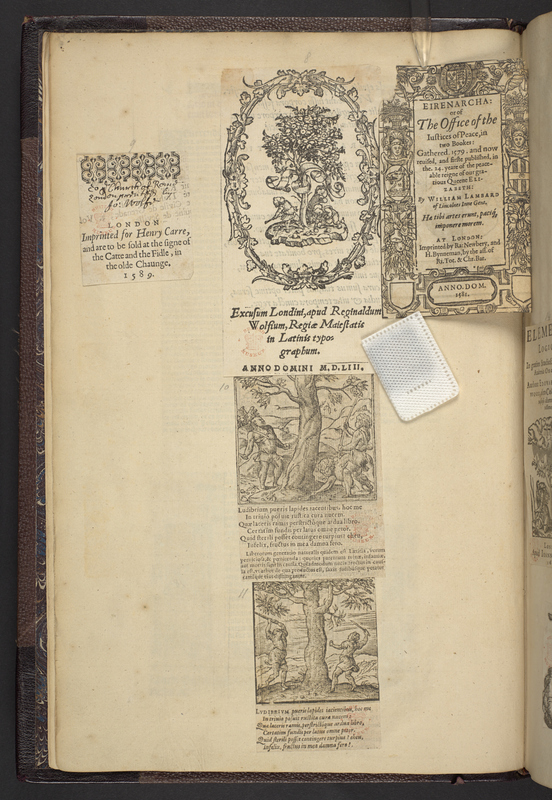 LONDON
Imprinted for Henry Carre,
and are to be sold at the signe of
the Catte and the Fidle, in
the olde Chaunge.
1589.
Excusum Londini, apud Reginaldum
Wolfium, Regiæ Maiestatis
in Latinis typo-
graphum.
ANNO DOMINI M.D.LIII.
EIRENARCHA:
or of
The Office of the
Iustices of Peace, in
two Bookes:
Gathered. 1579. and now
reuised, and firste published, in
the. 24. yeare of the peace-
able reigne of our gra-
tious Queene ELI-
ZABETH:
By WILLIAM LAMBARD
of Lincolnes Inne Gent.
Hæ tibi erunt artes, pacisq́,
imponere morem.
AT LONDON:
Imprinted by Ra: Newbery, and
H. Bynneman, by the ass. of
Ri. Tot. & Chr. Bar.
ANNO. DOM.
1581.
10
Ludibrium pueris lapides iacentibus, hoc me
In triuio posuit rustica cura nucem.
Quæ laceris ramis perstrictóque ardua libro,
Certatim fundis per latus omne petor.
Quid sterili posset contingere turpius? eheu,
Infelix, fructus in mea damna fero.
11
LVDIBRIVM pueris lapides iacientibus, hoc me
In triuio posuit rustica cura nucem:
Quæ laceris ramis, perstrictóque ardua libro,
Certatim fundis per latus omne petor.
Quid sterili posset contingere turpius? eheu,
Infelix, fructus in mea damna fero.